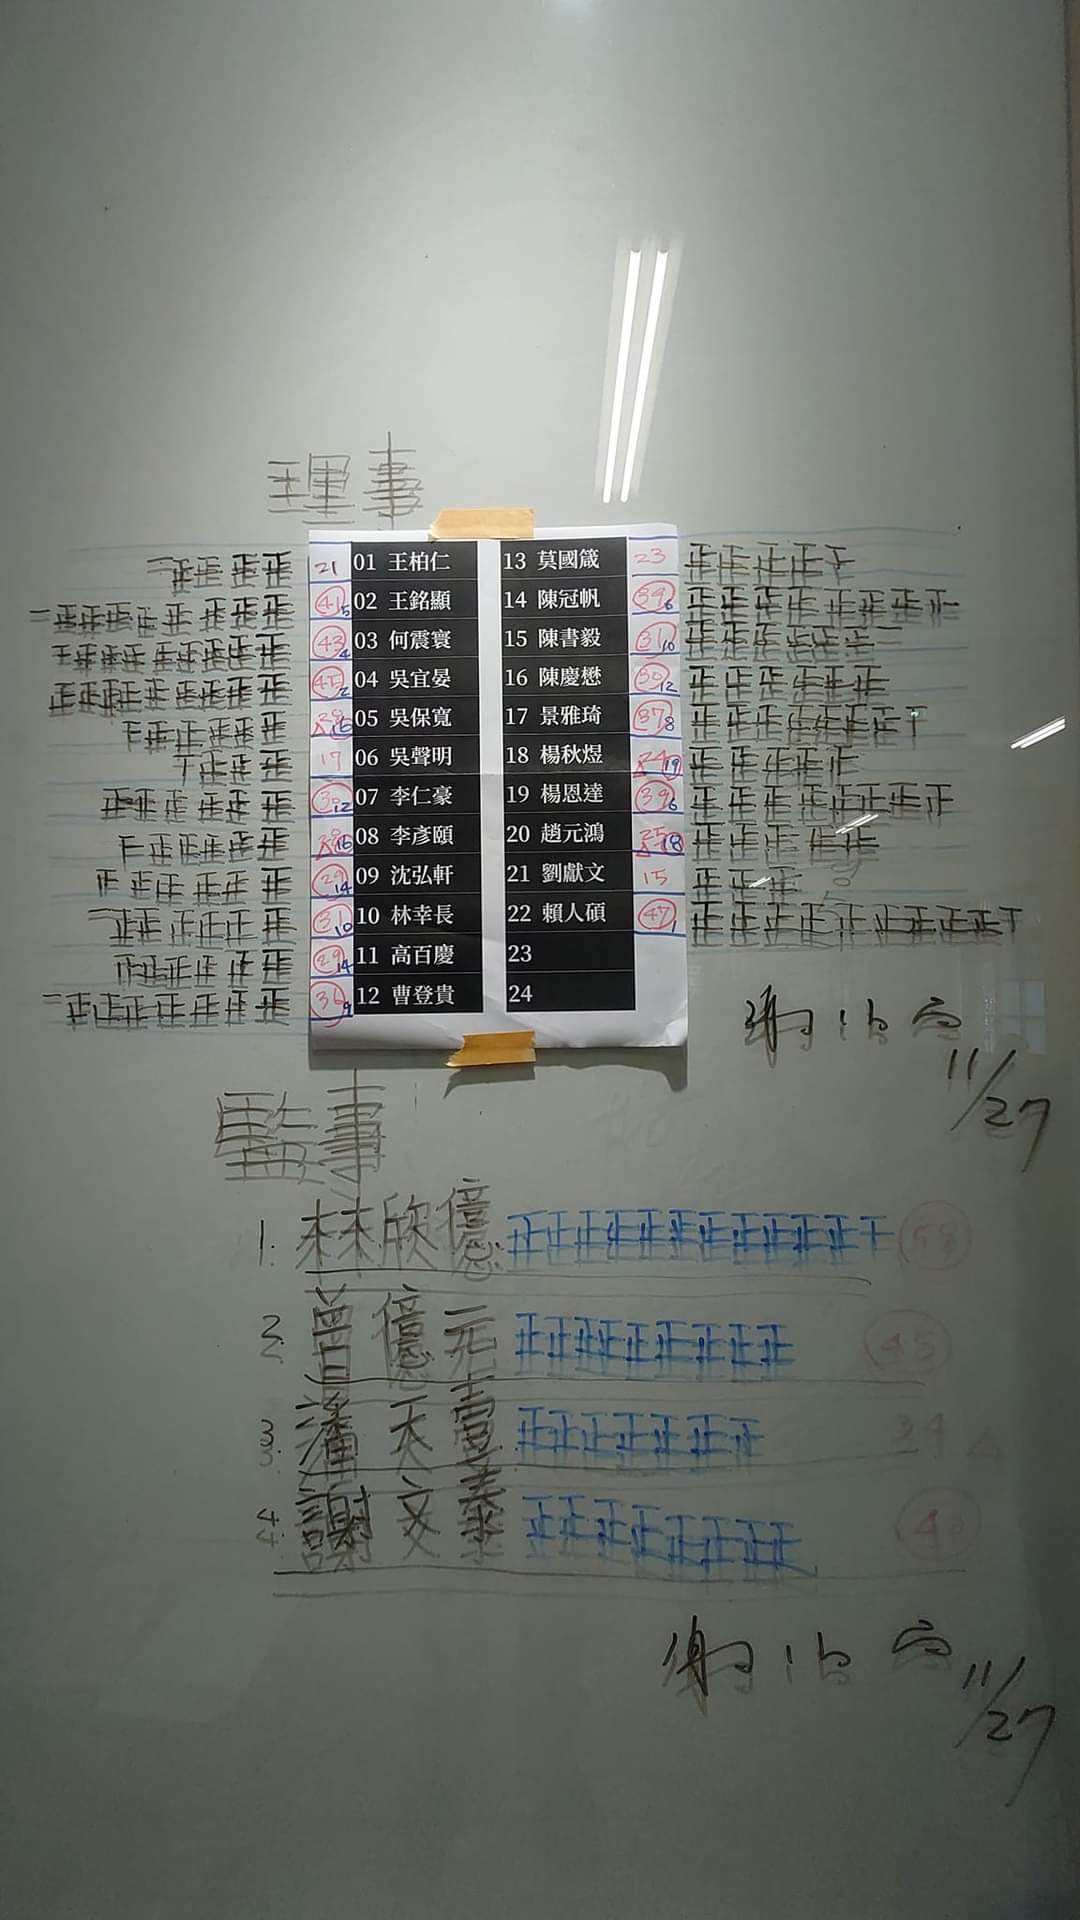 理事
21 01 王柏仁
41 5 02 王銘顯
43 4 03 何震寰
45 2 04 吳宜晏
28 16 05 吳保寬
17 06 吳聲明
12 07 李仁豪
28 16 08 李彥頤
29 14 09 沈弘軒
31 10 10 林幸長
29 14 11 高百慶
36 9 12 曹登貴
13 莫國箴 23
14 陳冠帆 39 6
15 陳書毅 31 10
16 陳慶懋 30 12
17 景雅琦 37 8
18 楊秋煜 24 19
19 楊恩達 39 6
20 趙元鴻 25 18
21 劉獻文 15
22 賴人碩 47 1
23
24
11/27
監事
1. 林欣億 正正正正正正正正正正正丅 58
2. 曾億元 正正正正正正正正正 45
3. 潘天壹 34
4. 謝文泰 正正正正正正正正 40
11/27